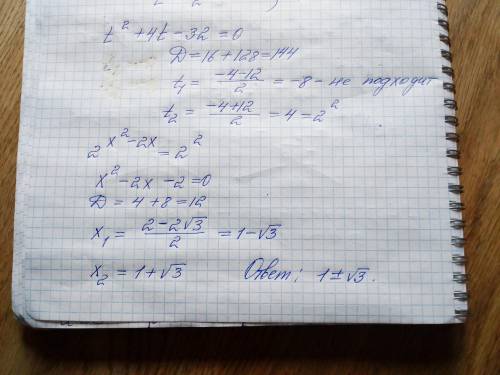 t² + 4t - 32 = 0
D = 16 + 128 = 144
t₁ = (-4-12)/2 = -8 - не подходит
t₂ = (-4+12)/2 = 4 = 2²
2^(x²-2x) = 2²
x² - 2x - 2 = 0
D = 4 + 8 = 12
x₁ = (2-2√3)/2 = 1-√3
x₂ = 1+√3 Ответ: 1±√3.